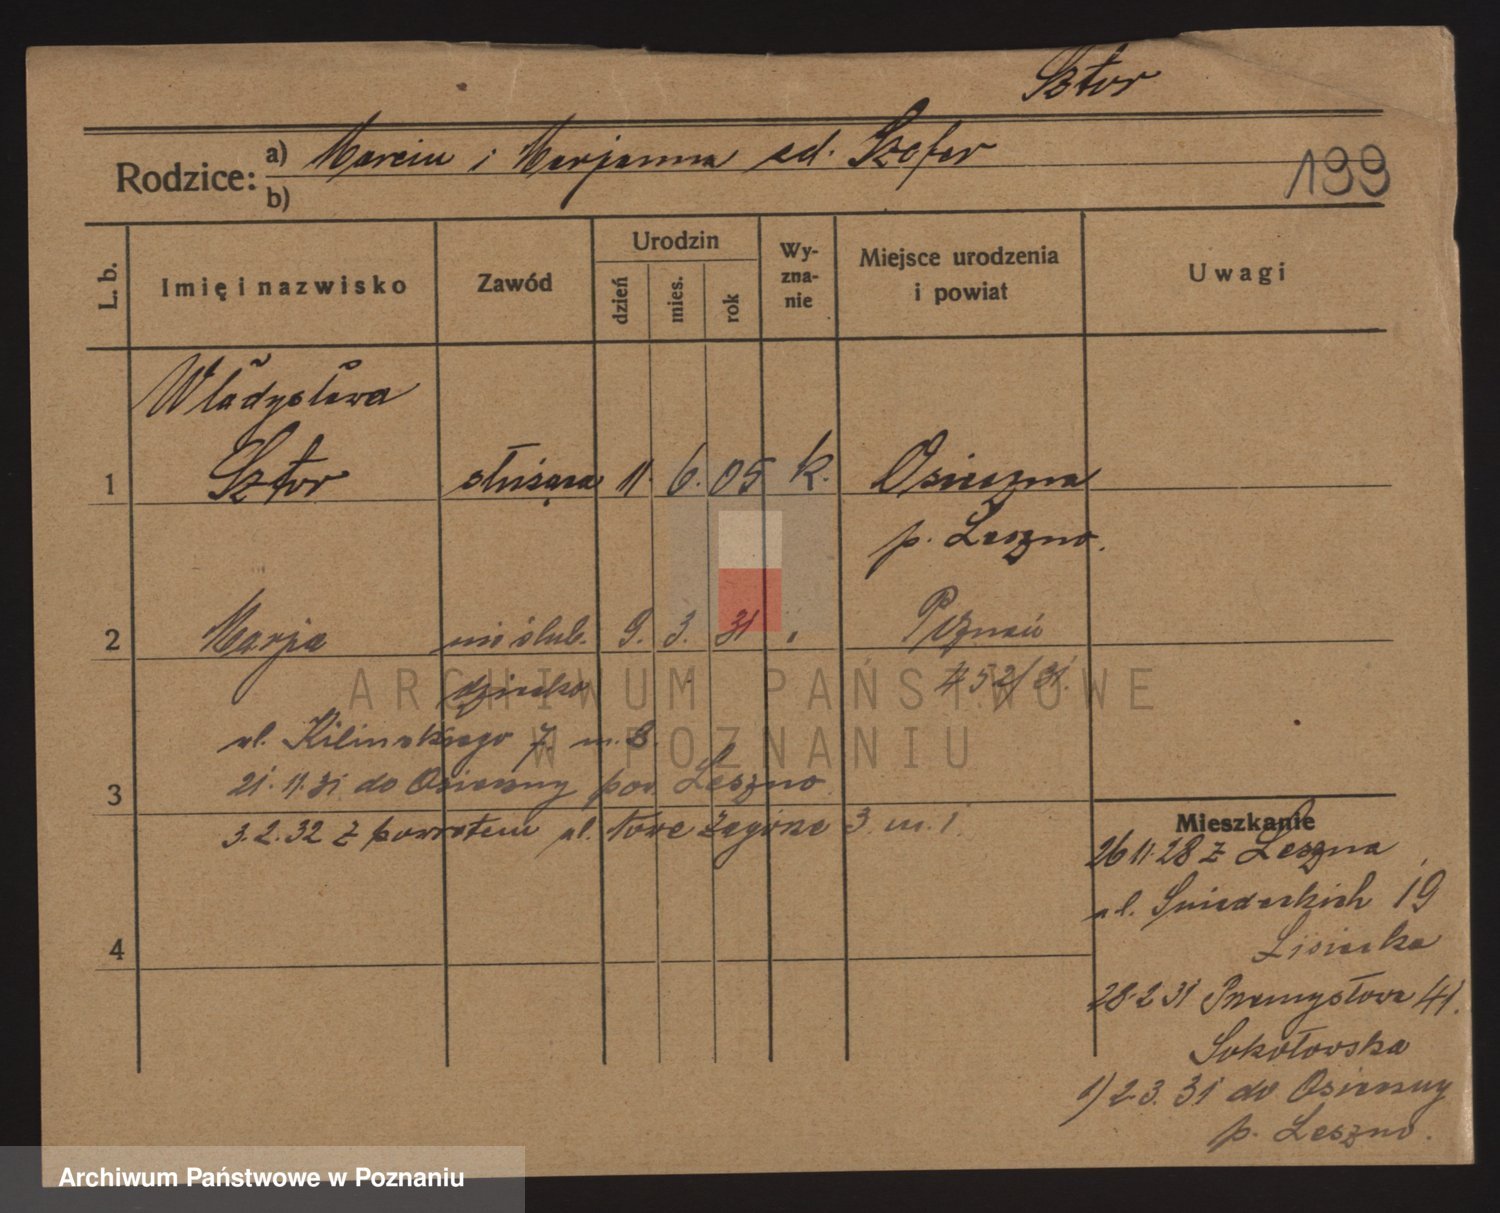 Sztor
Rodzice: a) Marcin i Marjanna zd. Szofer
b)
199
L. b.
Imię i nazwisko
Zawód
Urodzin
dzień
mies.
rok
Wy-
zna-
nie
Miejsce urodzenia
i powiat
Uwagi
Władysława
1 Sztor służąca 11. 6. 05 k. Osieczna
p. Leszno.
2 Marja nieślub. 9. 3. 31 Poznań
dziecko 452/31.
ul. Kilinskiego 7. m. 8.
21.11.31 do Osieczny pow. Leszno.
3
3.2.32 z powrotem ul. 3 m. 1
4
Mieszkanie
26 11.28 z Leszna
ul. Sniadeckich 19
Lisiecka
28.2 31 Przemysłowa 41.
Sokołowska
1) 2.3.31 do Osieczny
p. Leszno.
ARCHIWUM PAŃSTWOWE
W POZNANIU
Archiwum Państwowe w Poznaniu